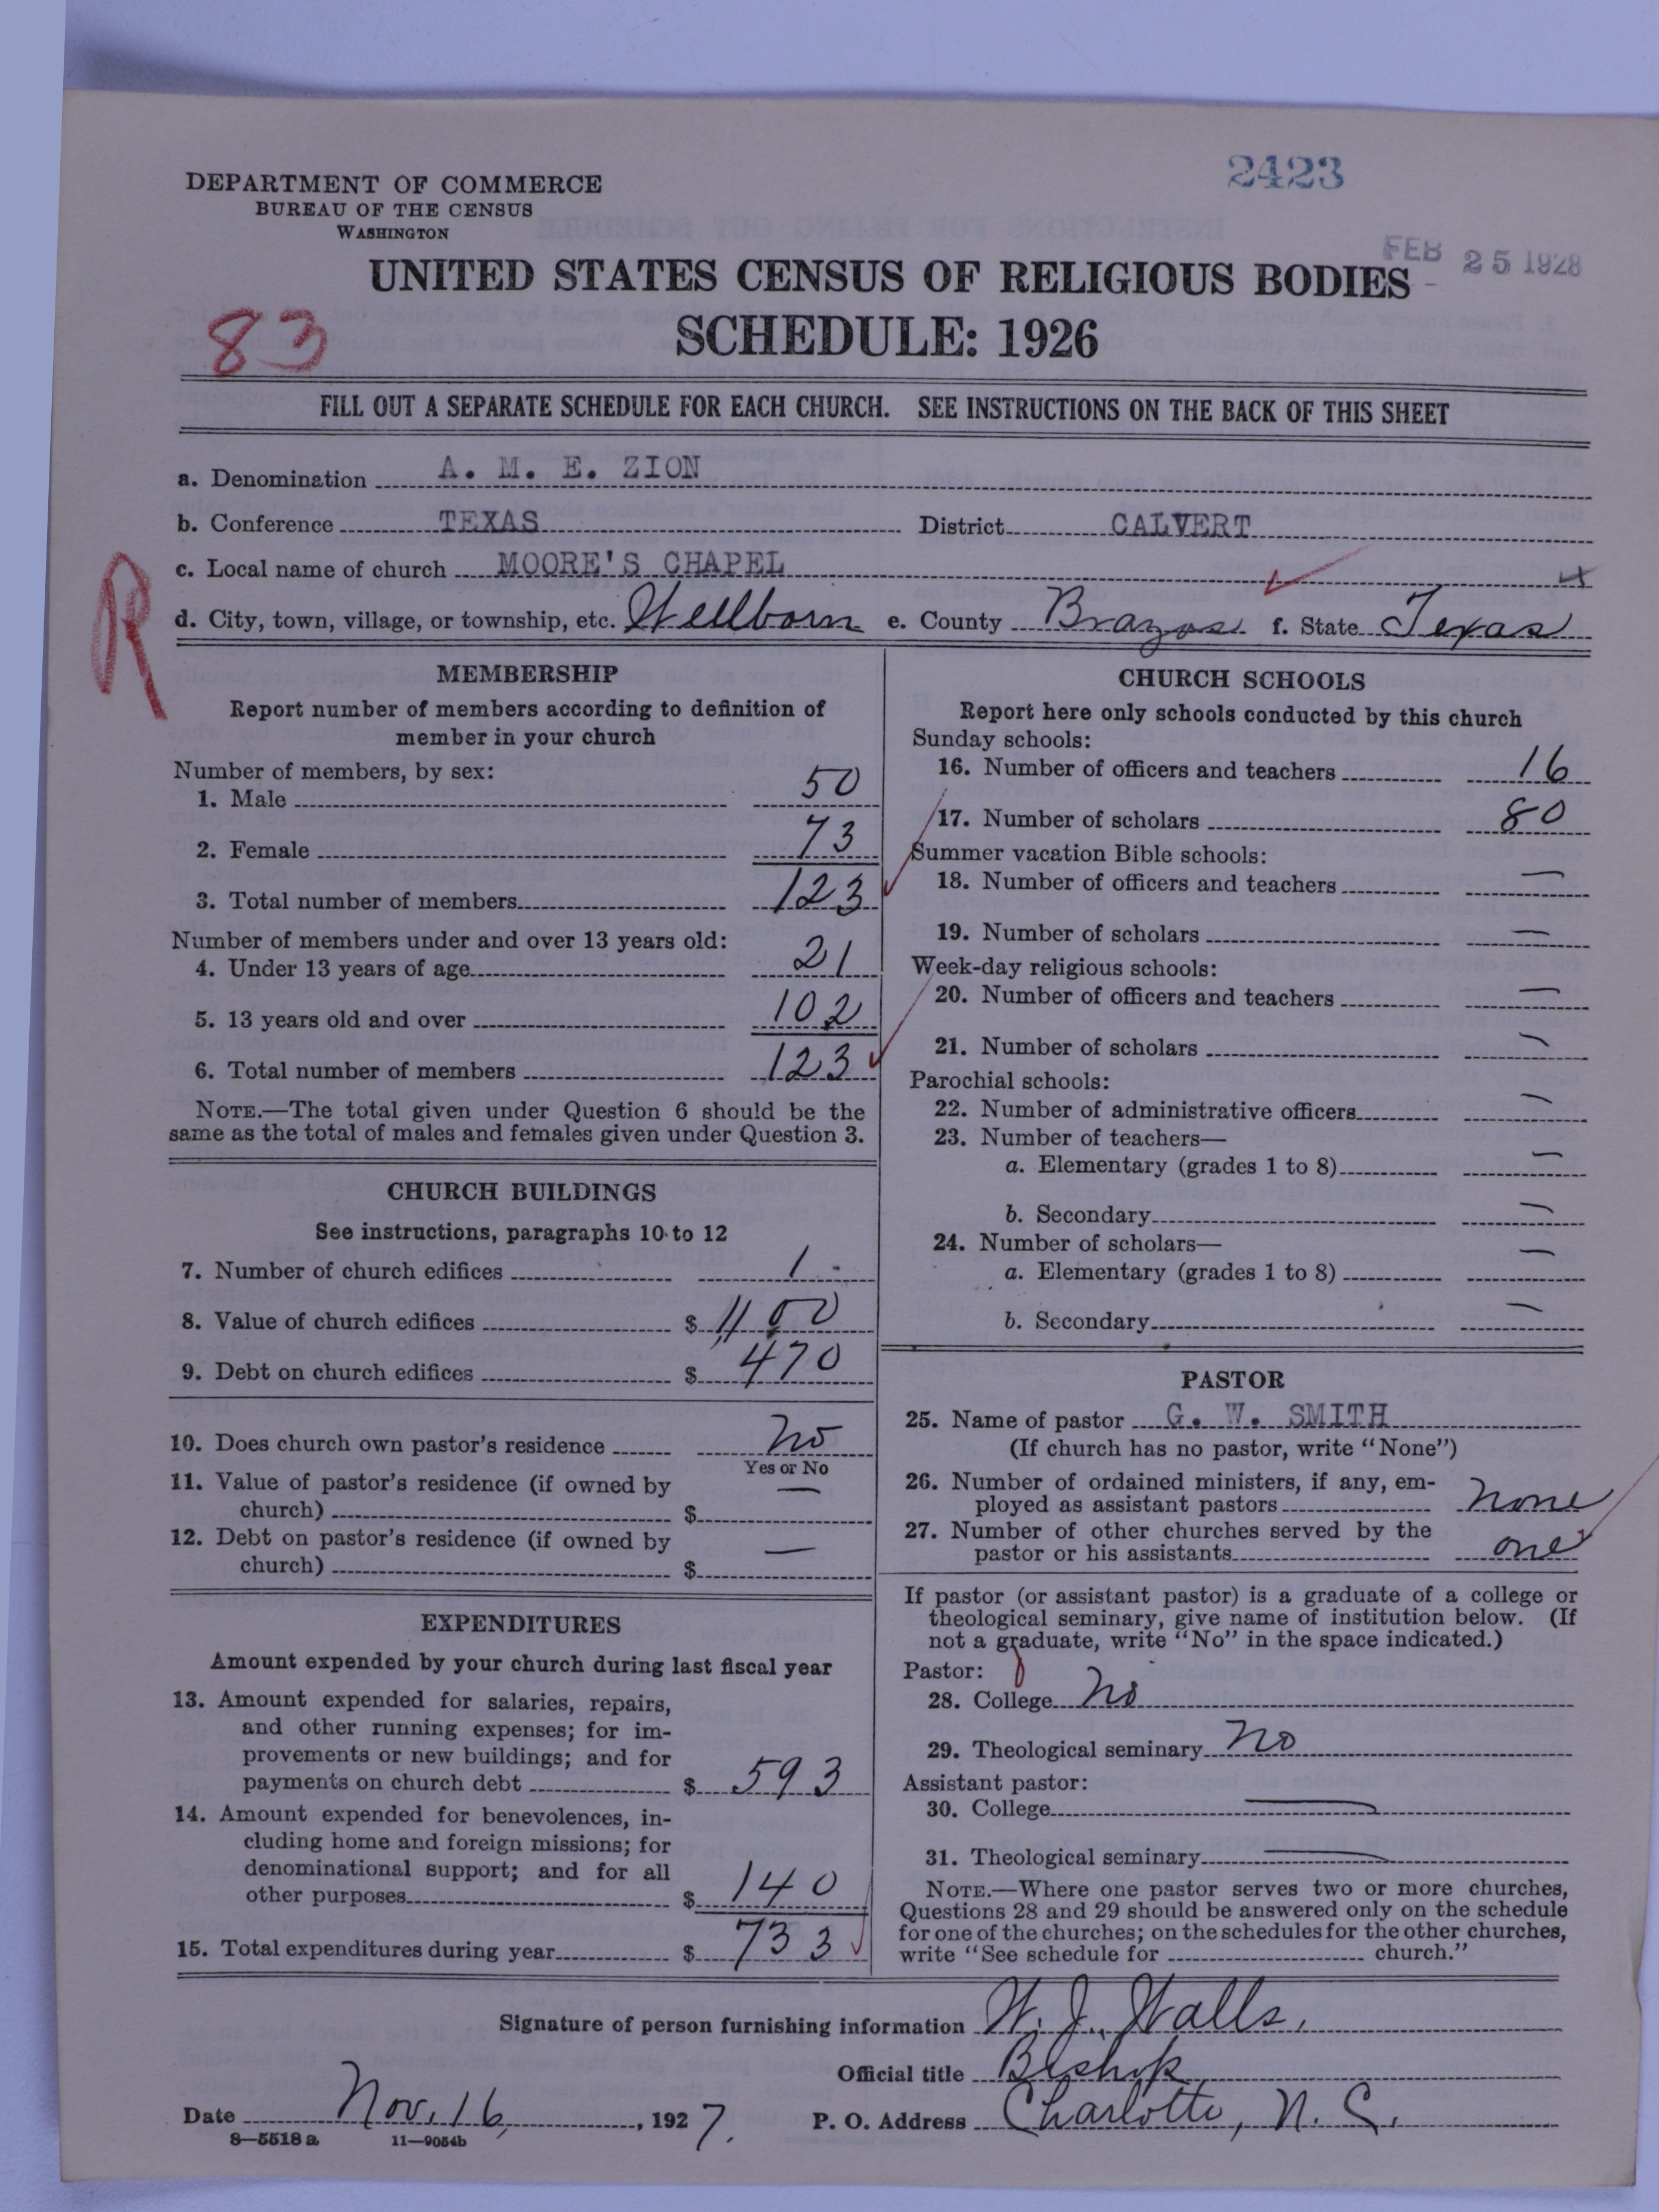 2423
DEPARTMENT OF COMMERCE
BUREAU OF THE CENSUS
WASHINGTON
FEB 25 1928
UNITED STATES CENSUS OF RELIGIOUS BODIES
83
SCHEDULE: 1926
FILL OUT A SEPARATE SCHEDULE FOR EACH CHURCH. SEE INSTRUCTIONS ON THE BACK OF THIS SHEET
a. Denomination A. M. E. ZION
b. Conference TEXAS District CALVERT
c. Local name of church MOORE'S CHAPEL
R
d. City, town, village, or township, etc. Wellborn e. County Brazos f. State Texas
MEMBERSHIP
Report number of members according to definition of
member in your church
Number of members, by sex:
1. Male 50
2. Female 73
3. Total number of members 123
Number of members under and over 13 years old:
4. Under 13 years of age 21
5. 13 years old and over 102
6. Total number of members 123
NOTE.—The total given under Question 6 should be the
same as the total of males and females given under Question 3.
CHURCH BUILDINGS
See instructions, paragraphs 10 to 12
7. Number of church edifices 1
8. Value of church edifices $ 1100
9. Debt on church edifices $ 470
10. Does church own pastor's residence No
Yes or No
11. Value of pastor's residence (if owned by
church) $ —
12. Debt on pastor's residence (if owned by
church) $ —
EXPENDITURES
Amount expended by your church during last fiscal year
13. Amount expended for salaries, repairs,
and other running expenses; for im-
provements or new buildings; and for
payments on church debt $ 593
14. Amount expended for benevolences, in-
cluding home and foreign missions; for
denominational support; and for all
other purposes $ 140
15. Total expenditures during year $ 733
CHURCH SCHOOLS
Report here only schools conducted by this church
Sunday schools:
16. Number of officers and teachers 16
17. Number of scholars 80
Summer vacation Bible schools:
18. Number of officers and teachers —
19. Number of scholars —
Week-day religious schools:
20. Number of officers and teachers —
21. Number of scholars —
Parochial schools:
22. Number of administrative officers —
23. Number of teachers—
a. Elementary (grades 1 to 8) —
b. Secondary —
24. Number of scholars—
a. Elementary (grades 1 to 8) —
b. Secondary —
PASTOR
25. Name of pastor G. W. SMITH
(If church has no pastor, write "None")
26. Number of ordained ministers, if any, em-
ployed as assistant pastors none
27. Number of other churches served by the
pastor or his assistants one
If pastor (or assistant pastor) is a graduate of a college or
theological seminary, give name of institution below. (If
not a graduate, write "No" in the space indicated.)
Pastor:
28. College No
29. Theological seminary No
Assistant pastor:
30. College —
31. Theological seminary —
NOTE.—Where one pastor serves two or more churches,
Questions 28 and 29 should be answered only on the schedule
for one of the churches; on the schedules for the other churches,
write "See schedule for church."
Signature of person furnishing information W. J. Walls,
Official title Bishop
Date Nov. 16, 1927. P. O. Address Charlotte, N. C.
8—5518 a 11—9054b